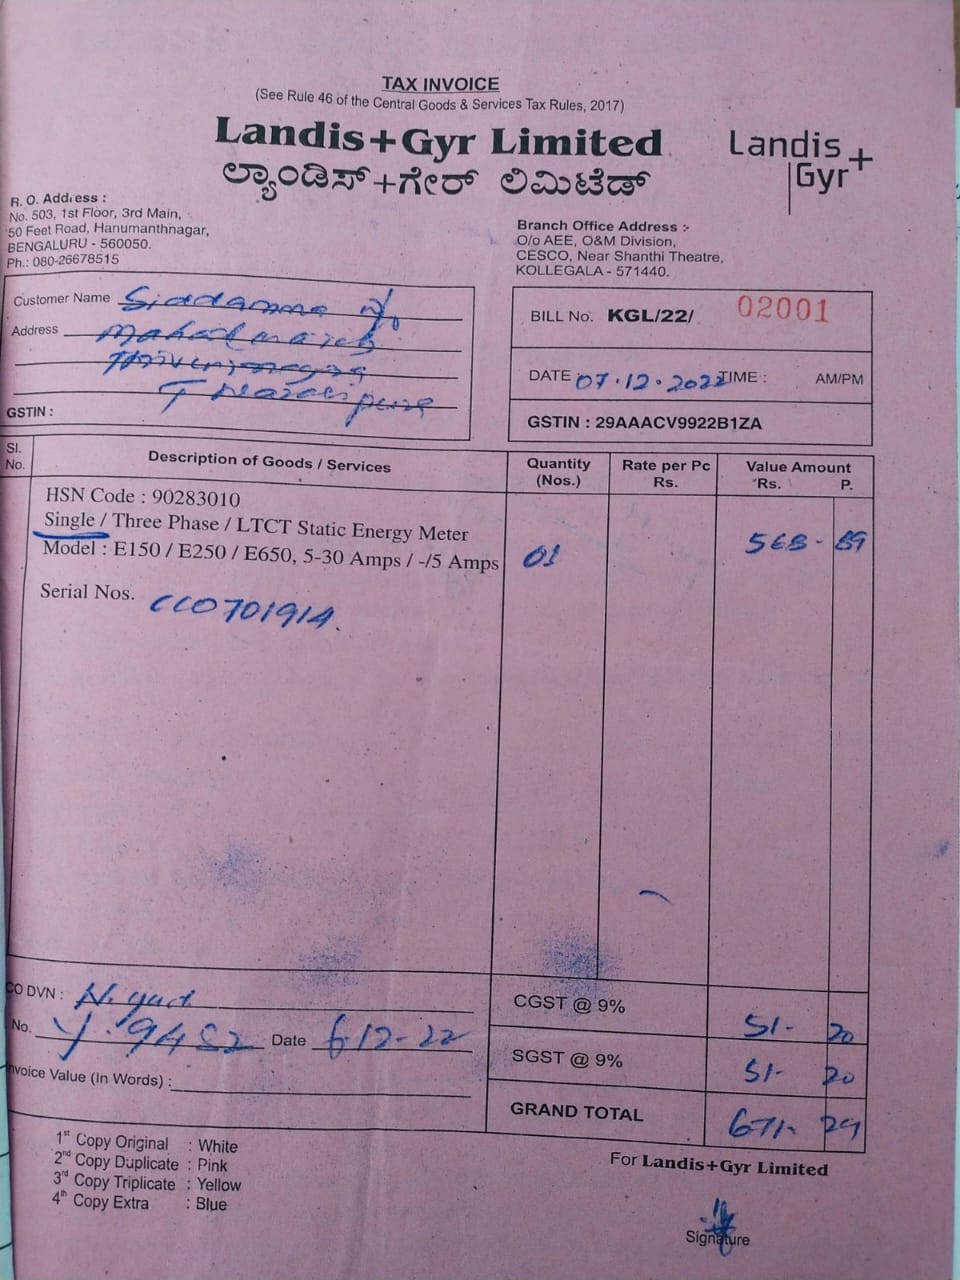 TAX INVOICE
(See Rule 46 of the Central Goods & Services Tax Rules, 2017)
Landis+Gyr Limited
ಲ್ಯಾಂಡಿಸ್+ಗೇರ್ ಲಿಮಿಟೆಡ್
Landis+
Gyr
R. O. Address :
No. 503, 1st Floor, 3rd Main,
50 Feet Road, Hanumanthnagar,
BENGALURU - 560050.
Ph.: 080-26678515
Branch Office Address :-
O/o AEE, O&M Division,
CESCO, Near Shanthi Theatre,
KOLLEGALA - 571440.
Customer Name Siddamma
Address
GSTIN :
BILL No. KGL/22/ 02001
DATE 07.12.2022 TIME : AM/PM
GSTIN : 29AAACV9922B1ZA
Sl. No. Description of Goods / Services Quantity (Nos.) Rate per Pc Rs. Value Amount Rs. P.
HSN Code : 90283010
Single / Three Phase / LTCT Static Energy Meter
Model : E150 / E250 / E650, 5-30 Amps / -/5 Amps 01 568- 89
Serial Nos. CC0701914.
CO DVN :
No. Y.9482 Date 6-12-22
nvoice Value (In Words) :
CGST @ 9% 51- 20
SGST @ 9% 51- 20
GRAND TOTAL 671- 29
1st Copy Original : White
2nd Copy Duplicate : Pink
3rd Copy Triplicate : Yellow
4th Copy Extra : Blue
For Landis+Gyr Limited
Signature